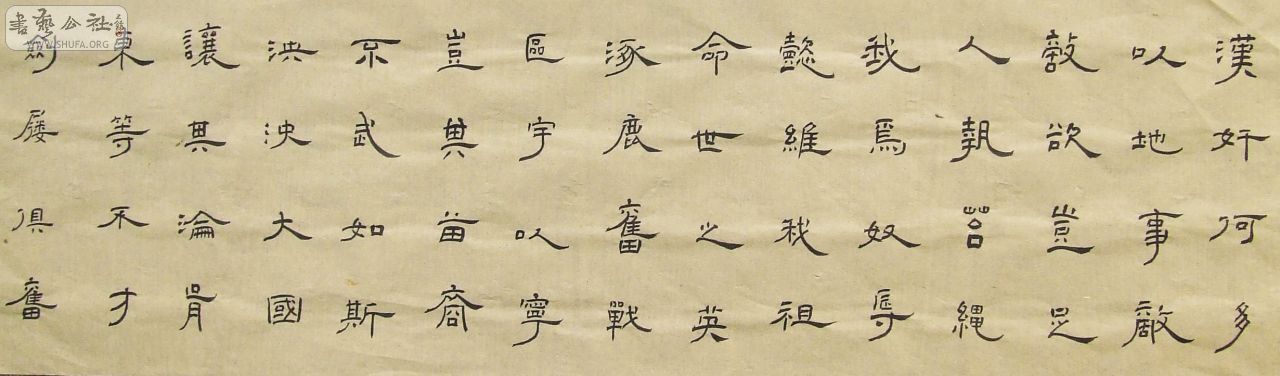 漢奸何多
以地事敵
敵欲豈足
人執苔繩
我為奴辱
懿維我祖
命世之英
涿鹿奮戰
區宇以寧
豈其苗裔
不武如斯
洪泱大國
讓其淪胥
東等不才
劍屨俱奮
書藝公社
WWW.SHUFA.ORG